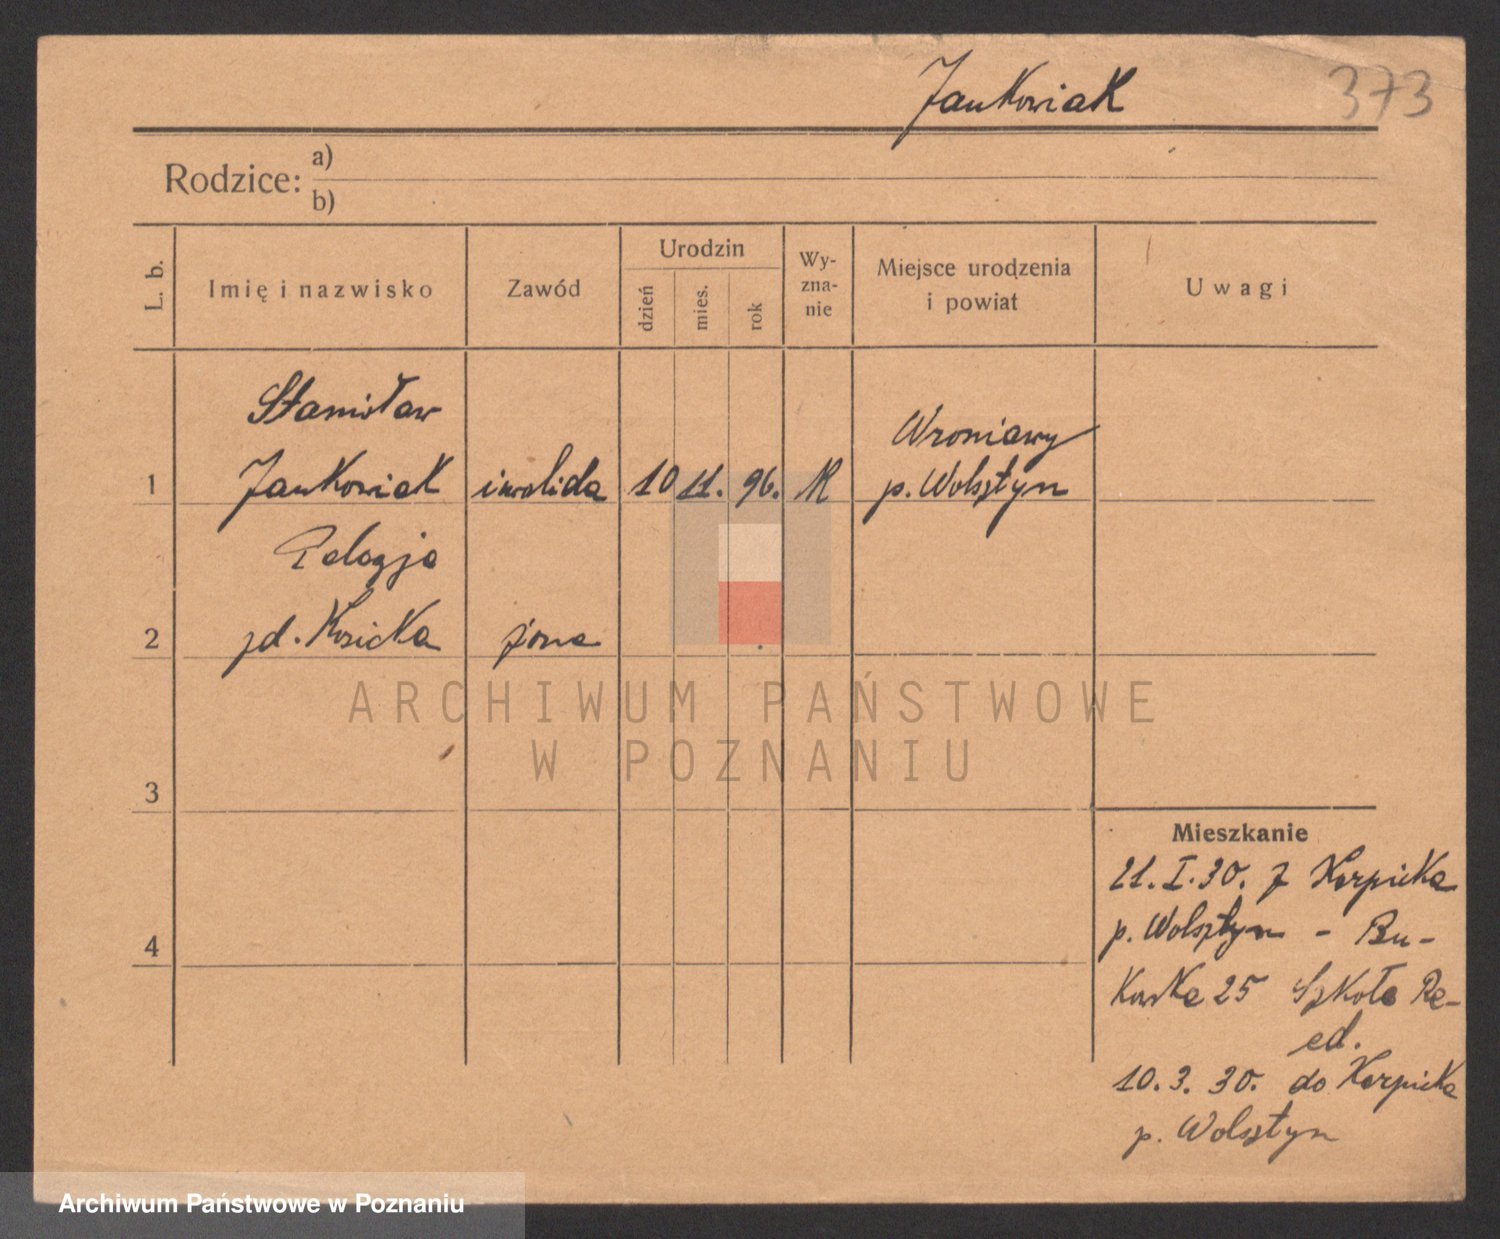 Jankowiak
373
Rodzice: a)
b)
L. b.
Imię i nazwisko
Zawód
Urodzin
dzień
mies.
rok
Wy-
zna-
nie
Miejsce urodzenia
i powiat
Uwagi
Stanisław
1 Jankowiak inwalida 10 11. 96. K
Wroniawy
p. Wolsztyn
Pelagja
2 zd. Kosicka żona
ARCHIWUM PAŃSTWOWE
W POZNANIU
3
4
Mieszkanie
21. I. 30. z Karpicka
p. Wolsztyn - Bu-
kowska 25 Szkoła Re-
ed.
10. 3. 30. do Karpicka
p. Wolsztyn
Archiwum Państwowe w Poznaniu